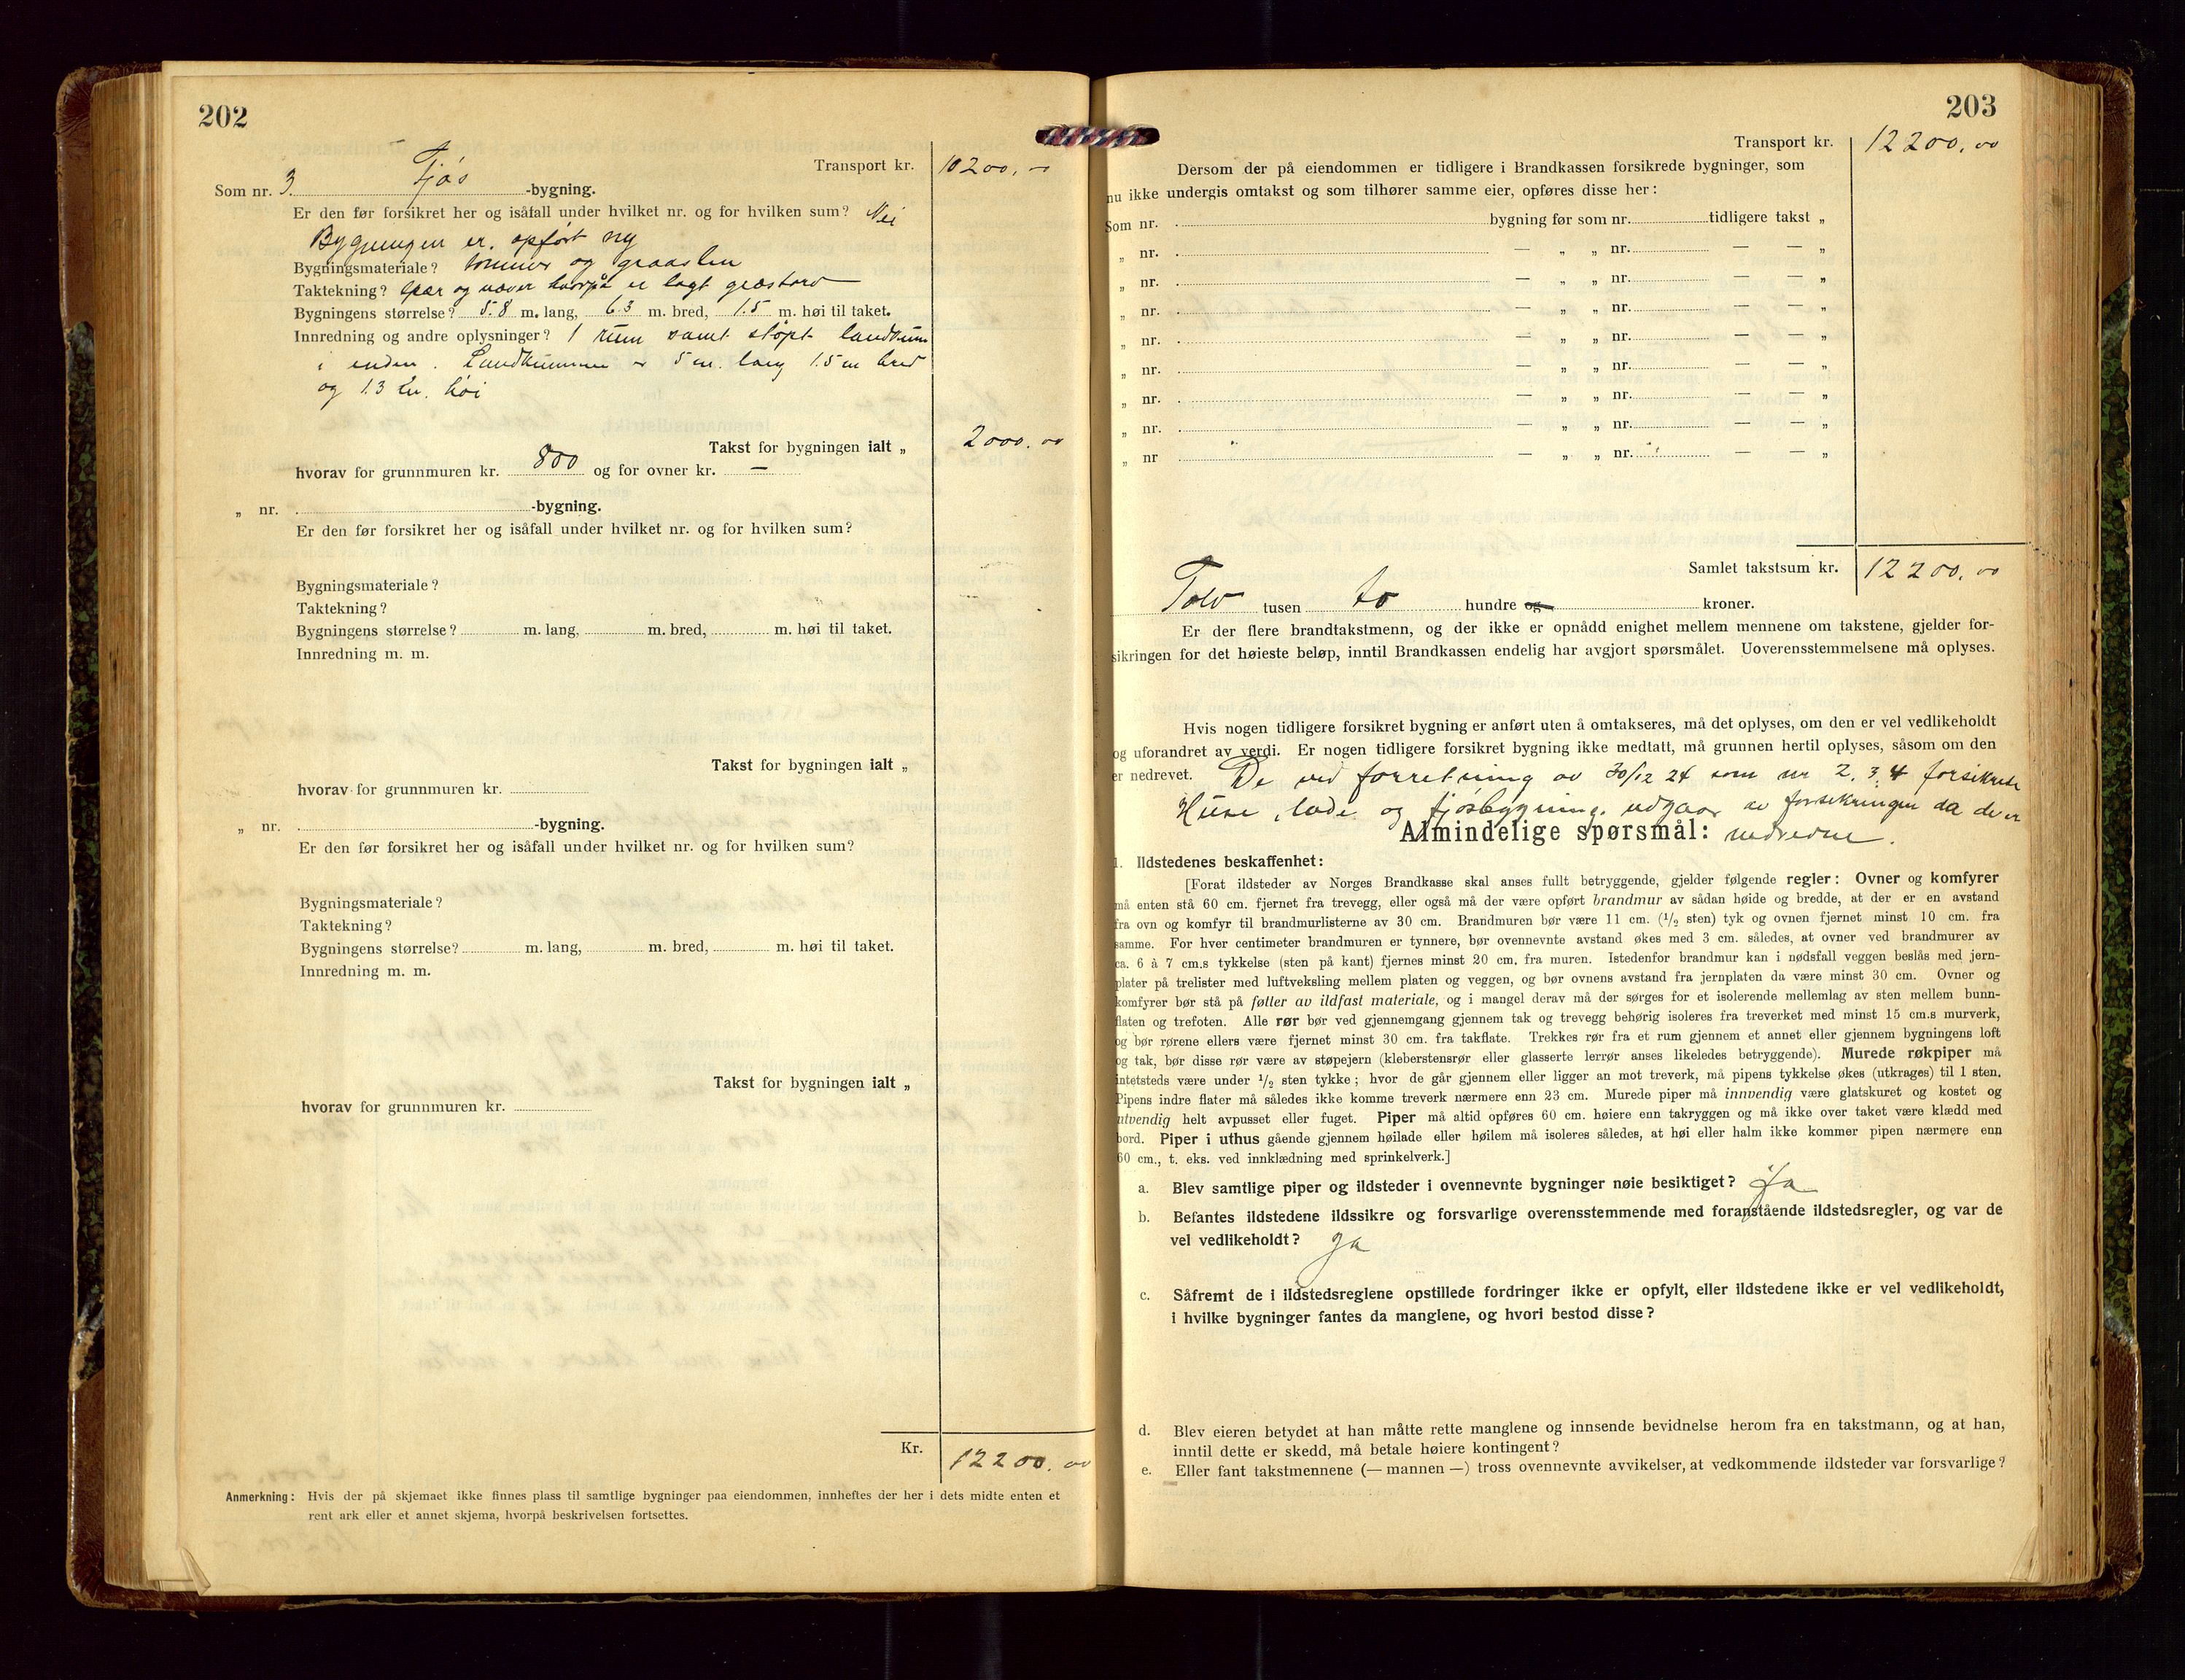 202
Transport kr. 10200,–
Som nr. 3. Fjøs -bygning.
Er den før forsikret her og isåfall under hvilket nr. og for hvilken sum? Nei
Bygningen er opført ny
Bygningsmateriale? tømmer og graasten
Taktekning? spær og næver hvorpå er lagt græstorv
Bygningens størrelse? 5.8 m. lang, 6.3 m. bred, 1.5 m. høi til taket.
Innredning og andre oplysninger? 1 rum samt støpt landkum
i enden. Landkummen er 5 m. lang 1.5 m bred
og 1.3 m. høi
Takst for bygningen ialt „ 2000.00
hvorav for grunnmuren kr. 800 og for ovner kr. —
„ nr. -bygning.
Er den før forsikret her og isåfall under hvilket nr. og for hvilken sum?
Bygningsmateriale?
Taktekning?
Bygningens størrelse? m. lang, m. bred, m. høi til taket.
Innredning m. m.
Takst for bygningen ialt „
hvorav for grunnmuren kr.
„ nr. -bygning.
Er den før forsikret her og isåfall under hvilket nr. og for hvilken sum?
Bygningsmateriale?
Taktekning?
Bygningens størrelse? m. lang, m. bred, m. høi til taket.
Innredning m. m.
Takst for bygningen ialt „
hvorav for grunnmuren kr.
Kr. 12200.00
Anmerkning: Hvis der på skjemaet ikke finnes plass til samtlige bygninger paa eiendommen, innheftes der her i dets midte enten et
rent ark eller et annet skjema, hvorpå beskrivelsen fortsettes.
203
Transport kr. 12200.00
Dersom der på eiendommen er tidligere i Brandkassen forsikrede bygninger, som
nu ikke undergis omtakst og som tilhører samme eier, opføres disse her:
Som nr. bygning før som nr. tidligere takst „
„ nr. — „ „ nr. — — „
„ nr. — „ „ nr. — — „
„ nr. — „ „ nr. — — „
„ nr. — „ „ nr. — — „
„ nr. — „ „ nr. — — „
„ nr. — „ „ nr. — — „
„ nr. — „ „ nr. — — „
„ nr — „ „ nr. — — „
Samlet takstsum kr. 12200.00
Tolv tusen to hundre og kroner.
Er der flere brandtakstmenn, og der ikke er opnådd enighet mellem mennene om takstene, gjelder for-
sikringen for det høieste beløp, inntil Brandkassen endelig har avgjort spørsmålet. Uoverensstemmelsene må oplyses.
Hvis nogen tidligere forsikret bygning er anført uten å omtakseres, må det oplyses, om den er vel vedlikeholdt
og uforandret av verdi. Er nogen tidligere forsikret bygning ikke medtatt, må grunnen hertil oplyses, såsom om den
er nedrevet. De ved forretning av 30/12 24 som nr 2, 3, 4 forsikrede
Huse, lade og fjøsbygning, udgaar av forsikringen da de er
Almindelige spørsmål: nedrevne.
1. Ildstedenes beskaffenhet:
[Forat ildsteder av Norges Brandkasse skal anses fullt betryggende, gjelder følgende regler: Ovner og komfyrer
må enten stå 60 cm. fjernet fra trevegg, eller også må der være opført brandmur av sådan høide og bredde, at der er en avstand
fra ovn og komfyr til brandmurlisterne av 30 cm. Brandmuren bør være 11 cm. (1/2 sten) tyk og ovnen fjernet minst 10 cm. fra
samme. For hver centimeter brandmuren er tynnere, bør ovennevnte avstand økes med 3 cm. således, at ovner ved brandmurer av
ca. 6 à 7 cm.s tykkelse (sten på kant) fjernes minst 20 cm. fra muren. Istedenfor brandmur kan i nødsfall veggen beslås med jern-
plater på trelister med luftveksling mellem platen og veggen, og bør ovnens avstand fra jernplaten da være minst 30 cm. Ovner og
komfyrer bør stå på føtter av ildfast materiale, og i mangel derav må der sørges for et isolerende mellemlag av sten mellem bunn-
flaten og trefoten. Alle rør bør ved gjennemgang gjennem tak og trevegg behørig isoleres fra treverket med minst 15 cm.s murverk,
og bør rørene ellers være fjernet minst 30 cm. fra takflate. Trekkes rør fra et rum gjennem et annet eller gjennem bygningens loft
og tak, bør disse rør være av støpejern (kleberstensrør eller glasserte lerrør anses likeledes betryggende). Murede røkpiper må
intetsteds være under 1/2 sten tykke; hvor de går gjennem eller ligger an mot treverk, må pipens tykkelse økes (utkrages) til 1 sten.
Pipens indre flater må således ikke komme treverk nærmere enn 23 cm. Murede piper må innvendig være glatskuret og kostet og
utvendig helt avpusset eller fuget. Piper må altid opføres 60 cm. høiere enn takryggen og må ikke over taket være klædd med
bord. Piper i uthus gående gjennem høilade eller høilem må isoleres således, at høi eller halm ikke kommer pipen nærmere enn
60 cm., t. eks. ved innklædning med sprinkelverk.]
a. Blev samtlige piper og ildsteder i ovennevnte bygninger nøie besiktiget? Ja
b. Befantes ildstedene ildssikre og forsvarlige overensstemmende med foranstående ildstedsregler, og var de
vel vedlikeholdt? ja
c. Såfremt de i ildstedsreglene opstillede fordringer ikke er opfylt, eller ildstedene ikke er vel vedlikeholdt,
i hvilke bygninger fantes da manglene, og hvori bestod disse?
d. Blev eieren betydet at han måtte rette manglene og innsende bevidnelse herom fra en takstmann, og at han,
inntil dette er skedd, må betale høiere kontingent?
e. Eller fant takstmennene (— mannen —) tross ovennevnte avvikelser, at vedkommende ildsteder var forsvarlige?